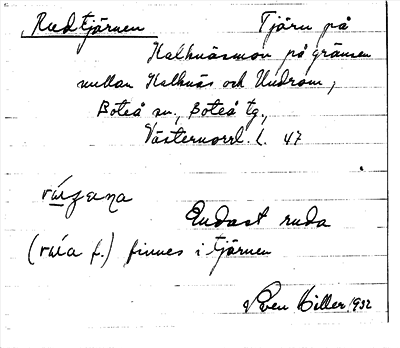 Rudtjärnen
Tjärn på
Kalknäsmon på gränsen
mellan Kalknäs och Undrom,
Boteå sn., Boteå tg.,
Västernorrl. l. 47
Endast ruda
(rúa f.) finnes i tjärnen
Sven Hiller. 1932